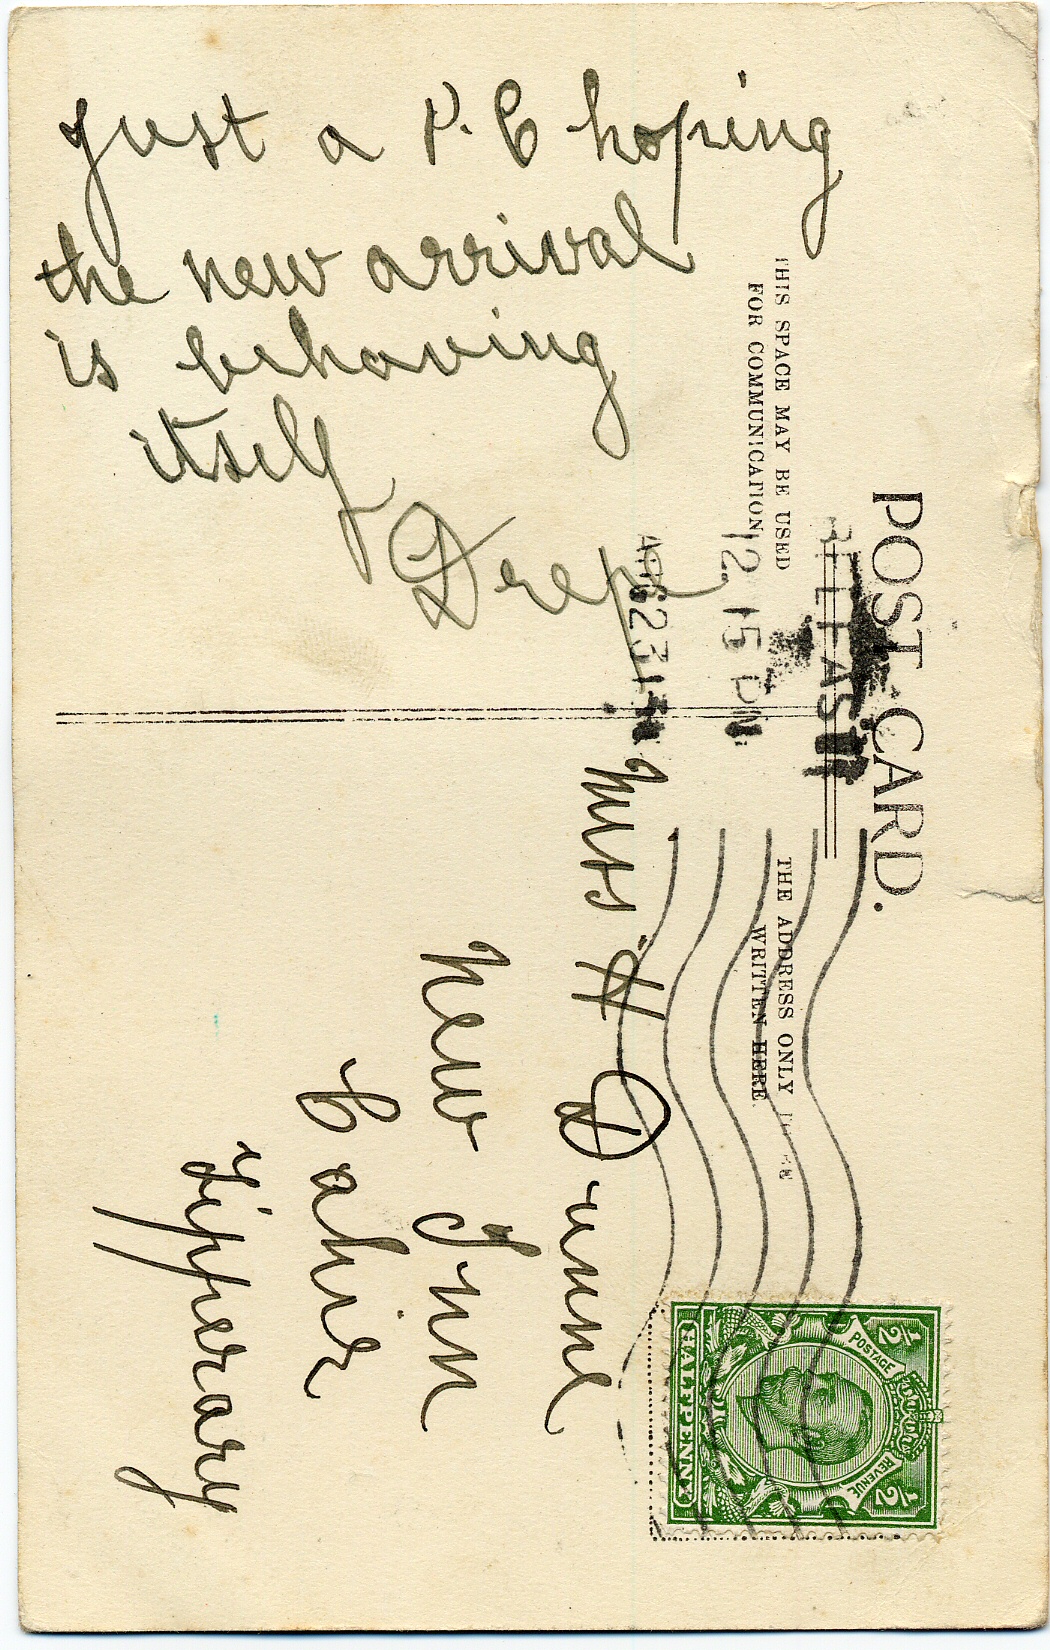 POST CARD.
THIS SPACE MAY BE USED
FOR COMMUNICATION
THE ADDRESS ONLY
WRITTEN HERE.
BELFAST
12 15 PM
AUG 23
Just a P. C hoping
the new arrival
is behaving
itself
Miss H Dunne
New Inn
Cahir
Tipperary
POSTAGE
REVENUE
1/2
1/2
HALFPENNY